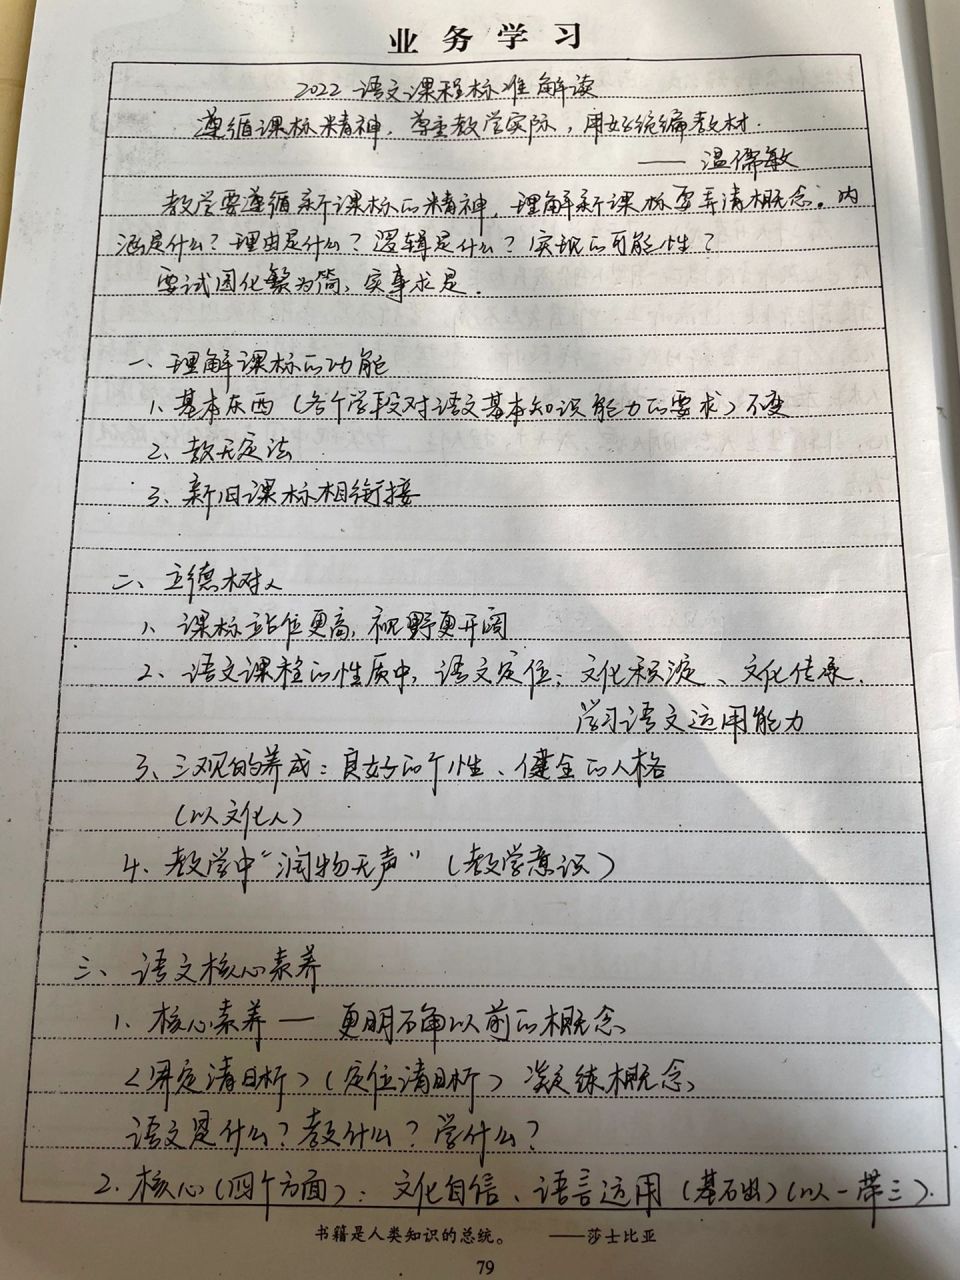 业务学习
2022 语文课程标准解读
遵循课标精神，尊重教学实际，用好统编教材.
—— 温儒敏
教学要遵循新课标的精神，理解新课标要弄清概念。内
涵是什么？理由是什么？逻辑是什么？实现的可能性？
要试图化繁为简，实事求是.
一、理解课标的功能
1、基本东西（各个学段对语文基本知识能力的要求）不变
2、教无定法
3、新旧课标相衔接
二、立德树人
1、课标站位更高，视野更开阔
2、语文课程的性质中，语文定位：文化积淀、文化传承、
学习语文运用能力
3、三观的养成：良好的个性、健全的人格
（以文化人）
4、教学中“润物无声”（教学意识）
三、语文核心素养
1、核心素养 — 更明确以前的概念
（界定清晰）（定位清晰）凝练概念，
语文是什么？教什么？学什么？
2. 核心（四个方面）：文化自信、语言运用（基石出）（以一带三）.
书籍是人类知识的总统。 ——莎士比亚
79